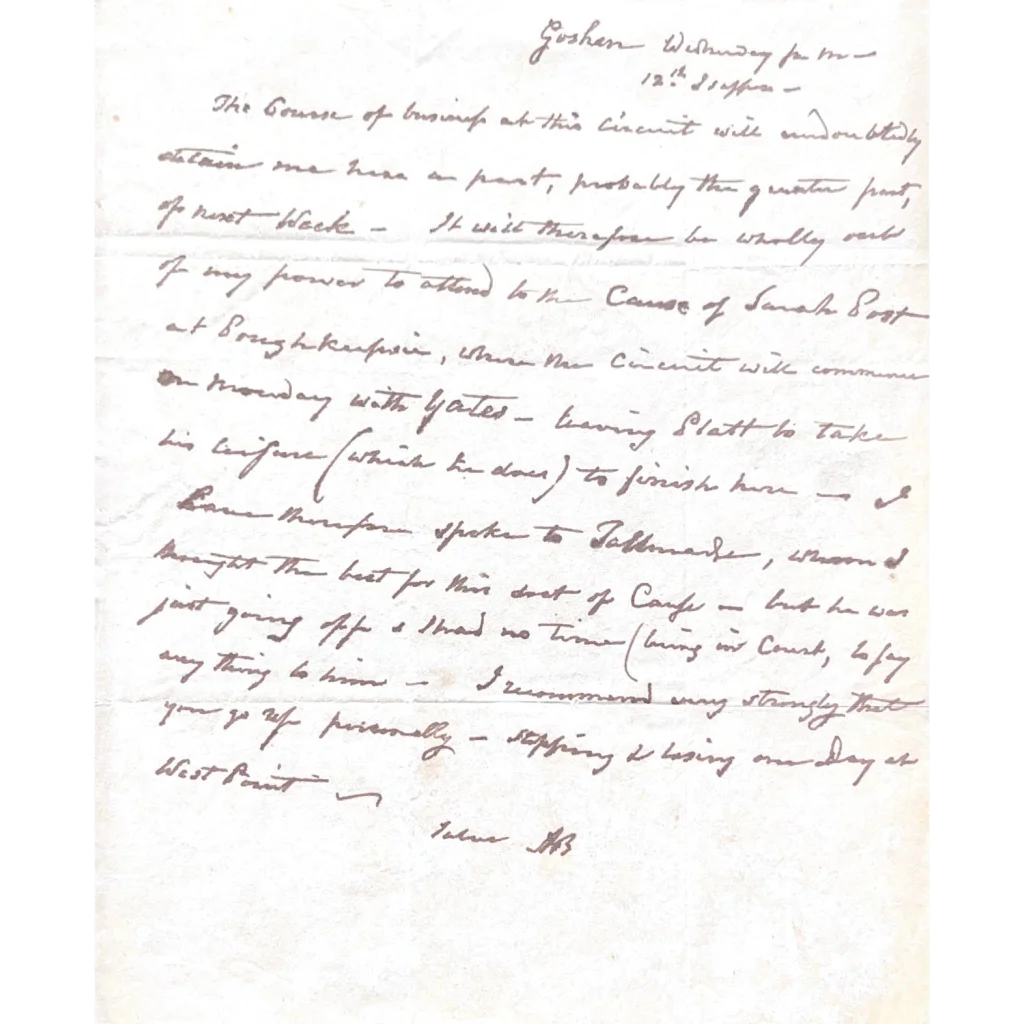 Goshen Wednesday p m —
12th
The Course of business at this Circuit will undoubtedly
detain me here a part, probably the greater part,
of next Week — It will therefore be wholly out
of my power to attend to the Cause of Sarah Post
at Poughkeepsie, where the Circuit will commence
on Monday with Yates — leaving Platt to take
his leisure (which he does) to finish here — I
have therefore spoke to Tallmadge, whom I
thought the best for this sort of Cause — but he was
just going off & I had no time (being in Court, to say
any thing to him — I recommend very strongly that
you go up personally — stopping & losing one Day at
West Point —
AB